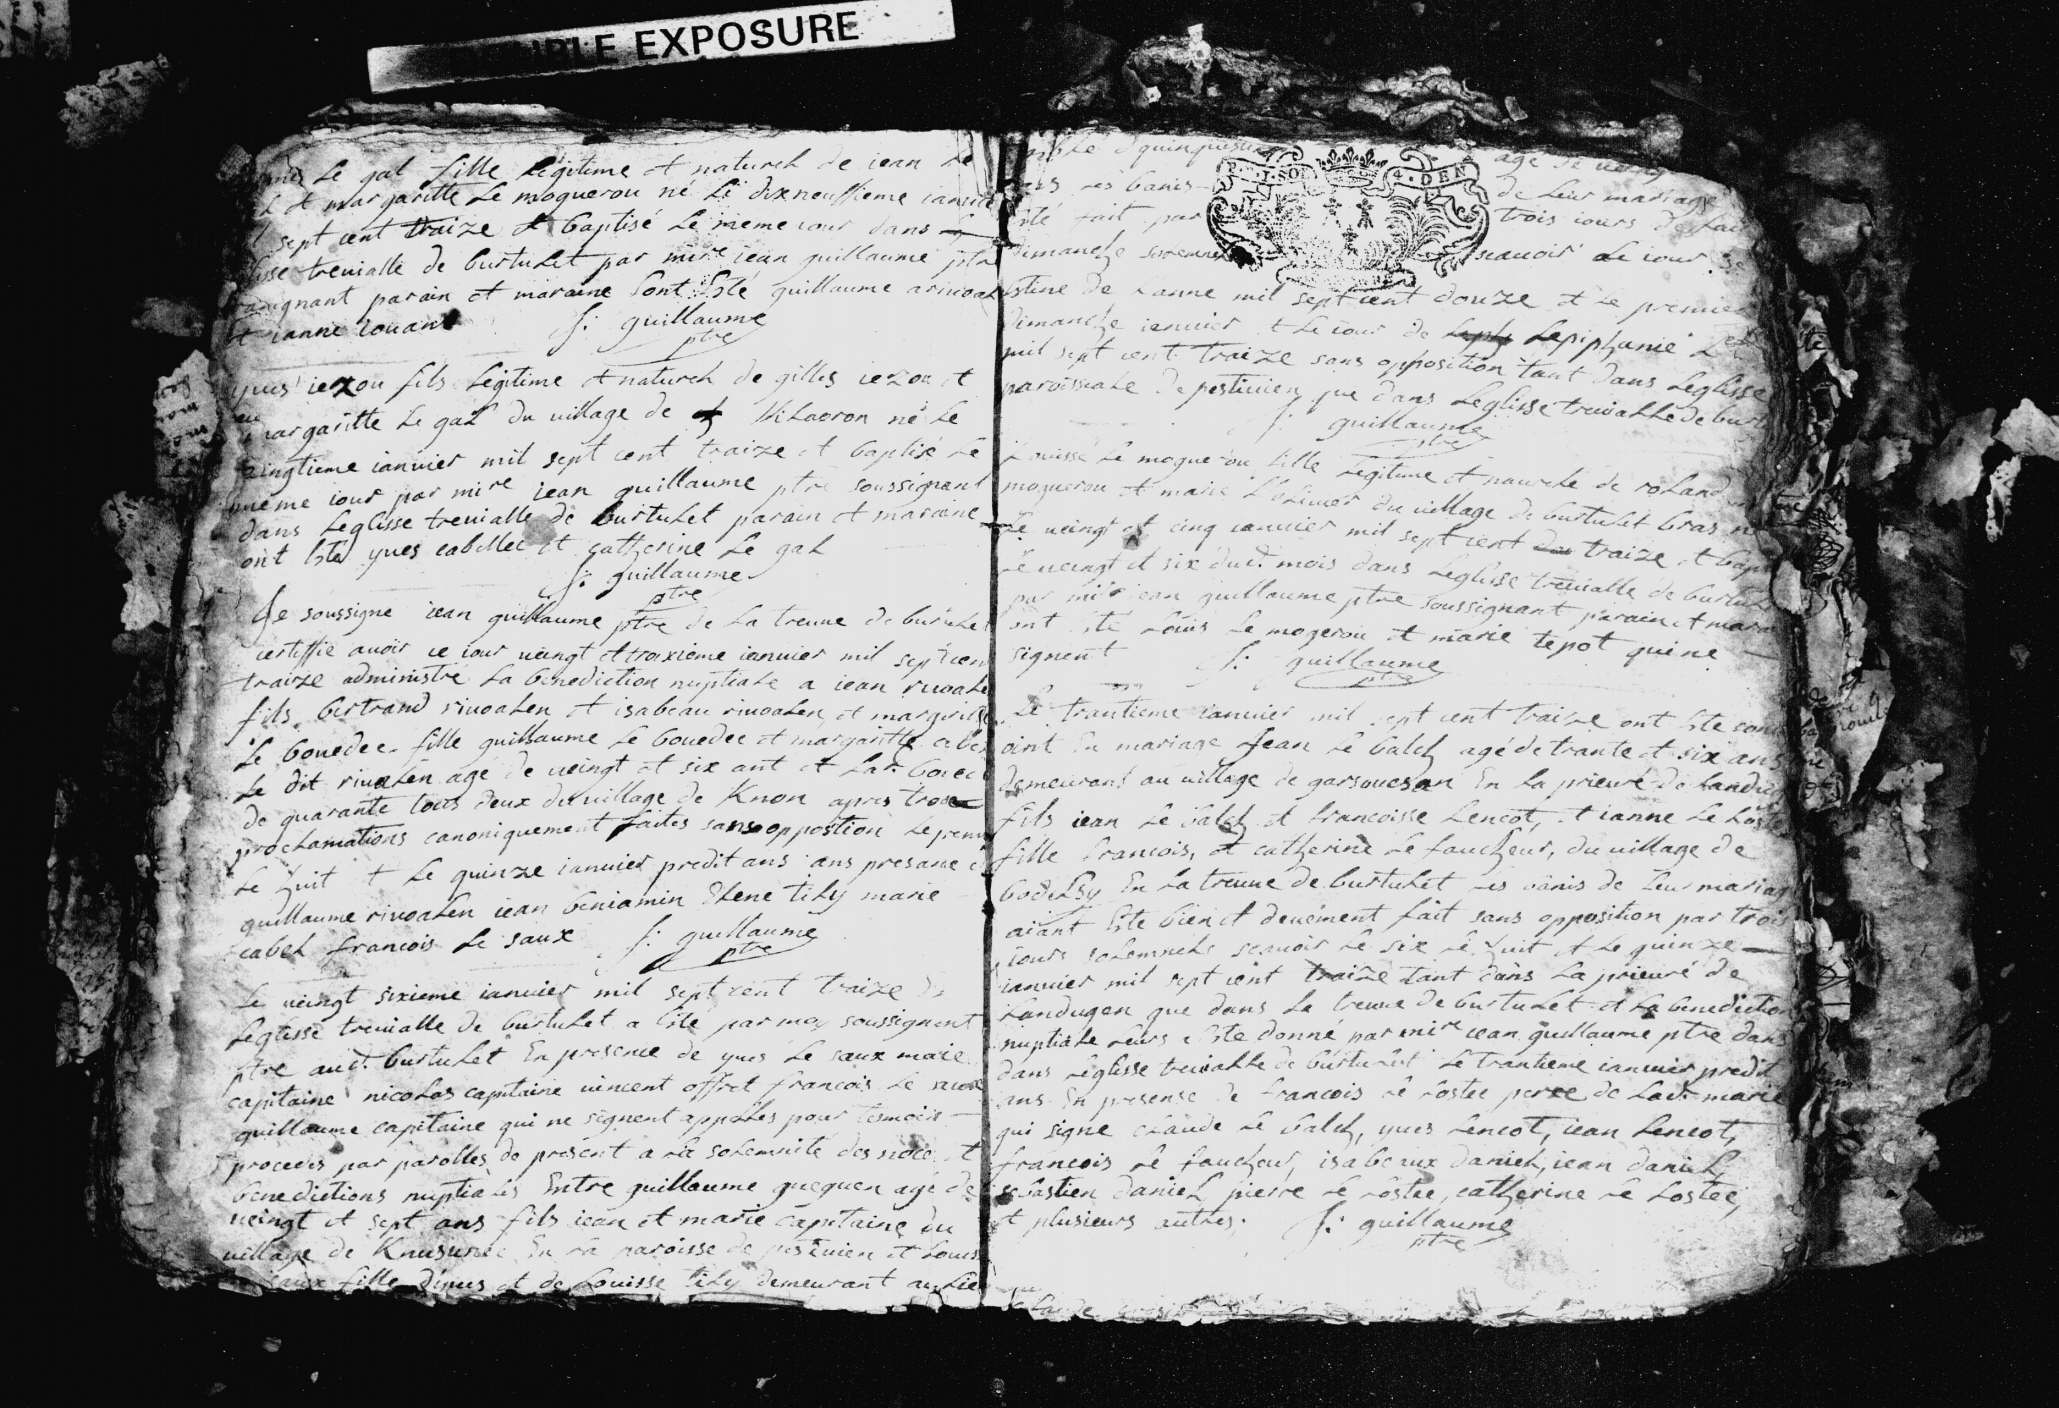 EXPOSURE
Le gal fille legitime et naturel de iean Le
et margaritte Le moguerou né Le dixneuffieme ianvie
sept cent traize et baptisé Le meme iour dans
treuialle de burtulet par mire iean guillaume ptre
parain et maraine sont esté guillaume ariuoal
et ianne iouan J: guillaume
ptre
yues iezou fils legitime et naturel de gilles iezou et
margaritte Le gal du village de Kilaoron né Le
vingtieme ianuier mil sept cent traize et baptisé Le
meme iour par mire iean guillaume ptre soussignant
dans Leglisse treuialle de burtulet parain et maraine
ont esté yues cabellec et catherine Le gal
J: guillaume
ptre
Je soussigne iean guillaume ptre de La treuue de burtulet
certiffie auoir ce iour veingt et troixieme ianuier mil sept cen
traize administre La benediction nuptiale a iean riuoale
fils bertrand riuoalen et isabeau riuoalen et margaritte
Le bouedec fille guillaume Le bouedec et margaritte
Le dit riuoalen agé de veingt et six ant et Lad. boued
de quarante tous deux du village de Knon apres trose
proclamations canoniquement faites sans oppostion Le
Le huit et Le quinze ianuier predit ans
guillaume riuoalen iean beniamin Elene tily marie
cabel francois Le saux J: guillaume
ptre
Le veingt sixieme ianuier mil sept cent traize
Leglisse treuialle de burtulet a esté par moy soussignent
ptre aud. burtulet En presence de yues Le saux marie
capitaine nicolas capitaine vincent offret francois Le
guillaume capitaine qui ne signent appellés pour temoins
procedés par parolles de present a La solemnité des noce et
benedictions nuptiales Entre guillaume gueguen agé de
veingt et sept ans fils iean et marie capitaine du
village de En La paroisse de pestiuien et Louis
saux fille diues et de Louisse tily demeurant au Lie
agé de
Les banis de Leur mariage
I·SO 4·DEN
esté fait par trois iours de
dimanche scauoir Le iour de
de Lanne mil sept cent douze et Le premier
dimanche ianuier et Le iour de Lepiphanie
mil sept cent traize sans opposition tant dans Leglisse
paroissiale de pestiuien que dans Leglisse treuialle de burt
J: guillaume
ptre
Louisse Le moguerou fille Legitime et de roland
moguerou et marie du village de burtulet bras
Le veingt et cinq ianuier mil sept cent traize et bapt
Le veingt et six dud. mois dans Leglisse treuialle de burtul
par mire iean guillaume ptre soussignant parain et mara
ont esté Louis Le mogerou et marie tepot qui ne
signent J: guillaume
ptre
Le trantieme ianuier mil sept cent traize ont esté con
oint En mariage Jean Le balch agé de trante et six ans
demeurant au village de garsouesan En La prieuré de Landu
fils iean Le balch et francoisse Lencot, et ianne Le Loste
fille francois, et catherine Le faucheur, du village de
En La treuue de burtulet Les banis de Leur mariag
aiant esté bien et deuément fait sans opposition par trois
iours solemnels scauoir Le six Le huit et Le quinze
ianuier mil sept cent traize tant dans La prieuré de
Landugen que dans La treuue de burtulet et La benediction
nuptiale Leurs esté donné par mire iean guillaume ptre dans
dans Leglisse treuialle de burtulet Le trantieme ianuier predit
ans En presense de francois Le Lostec perre de Lad. marie
qui signe claude Le balch, yues Lencot, iean Lencot,
francois Le faucheur, isabeaux daniel, iean daniel
sebastien daniel pierre Le Lostec, catherine Le Lostec,
et plusieurs autres. J: guillaume
ptre